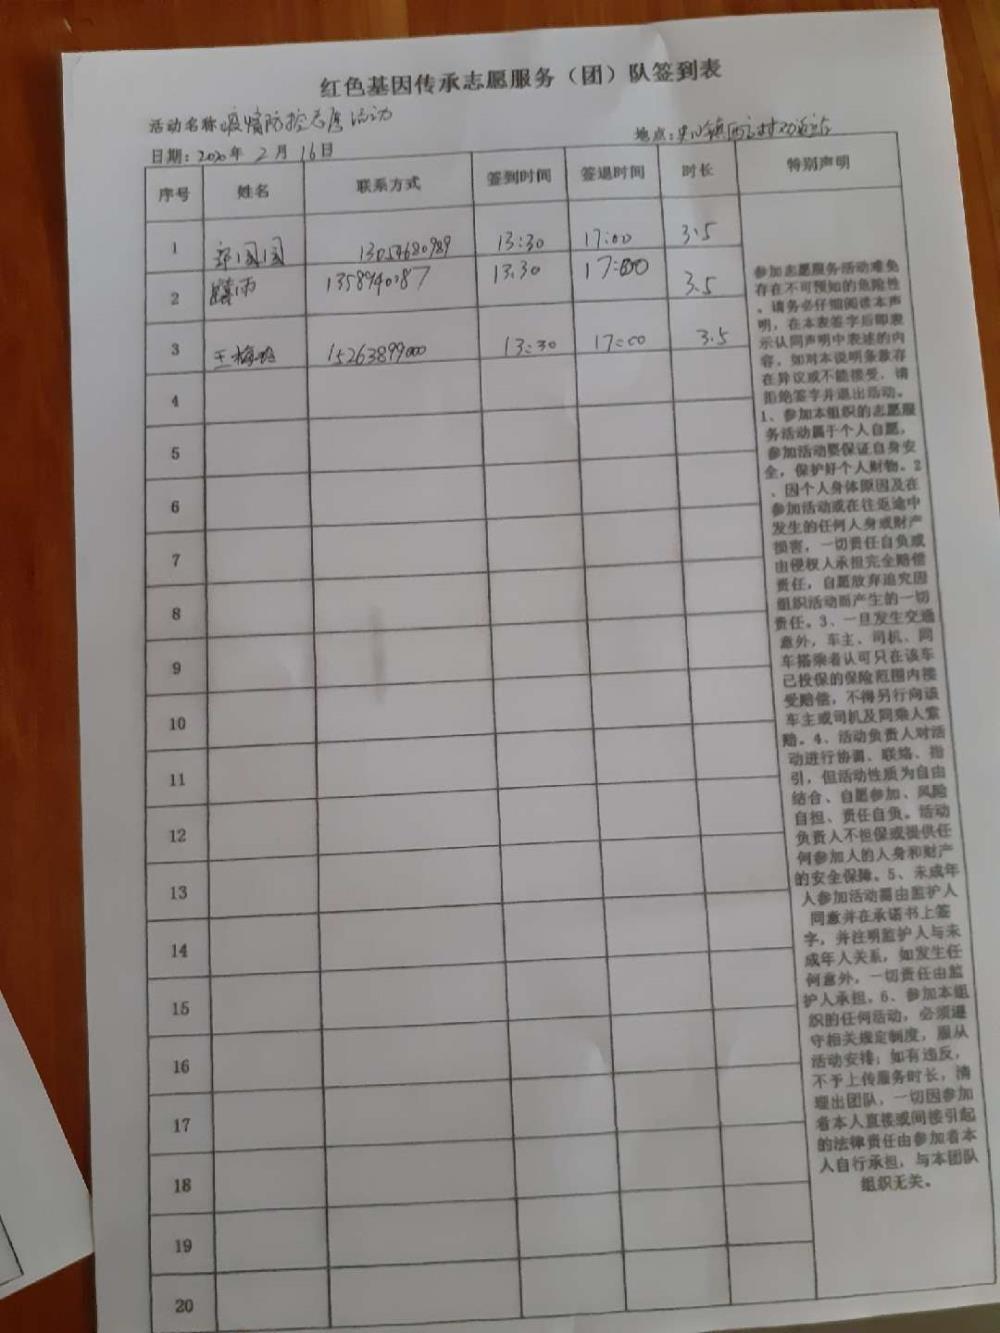 红色基因传承志愿服务（团）队签到表
活动名称 疫情防控志愿活动
地点:
日期: 2020年 2月 16日
序号 姓名 联系方式 签到时间 签退时间 时长 特别声明
1 13054680989 13:30 17:00 3.5
2 13:30 17:00 3.5
3 15263899000 13:30 17:00 3.5
4
5
6
7
8
9
10
11
12
13
14
15
16
17
18
19
20
参加志愿服务活动难免
存在不可预知的危险性
，请务必仔细阅读本声
明，在本表签字后即表
示认同声明中表述的内
容，如对本说明条款存
在异议或不能接受，请
拒绝签字并退出活动。
1、参加本组织的志愿服
务活动属于个人自愿，
参加活动要保证自身安
全，保护好个人财物。2
、因个人身体原因及在
参加活动或在往返途中
发生的任何人身或财产
损害，一切责任自负或
由侵权人承担完全赔偿
责任，自愿放弃追究因
组织活动而产生的一切
责任。3、一旦发生交通
意外，车主、司机、同
车搭乘者认可只在该车
已投保的保险范围内接
受赔偿，不得另行向该
车主或司机及同乘人索
赔。4、活动负责人对活
动进行协调、联络、指
引，但活动性质为自由
结合、自愿参加、风险
自担、责任自负。活动
负责人不担保或提供任
何参加人的人身和财产
的安全保障。5、未成年
人参加活动需由监护人
同意并在承诺书上签
字，并注明监护人与未
成年人关系，如发生任
何意外，一切责任由监
护人承担。6、参加本组
织的任何活动，必须遵
守相关规定制度，服从
活动安排；如有违反，
不予上传服务时长，清
理出团队，一切因参加
者本人直接或间接引起
的法律责任由参加者本
人自行承担，与本团队
组织无关。